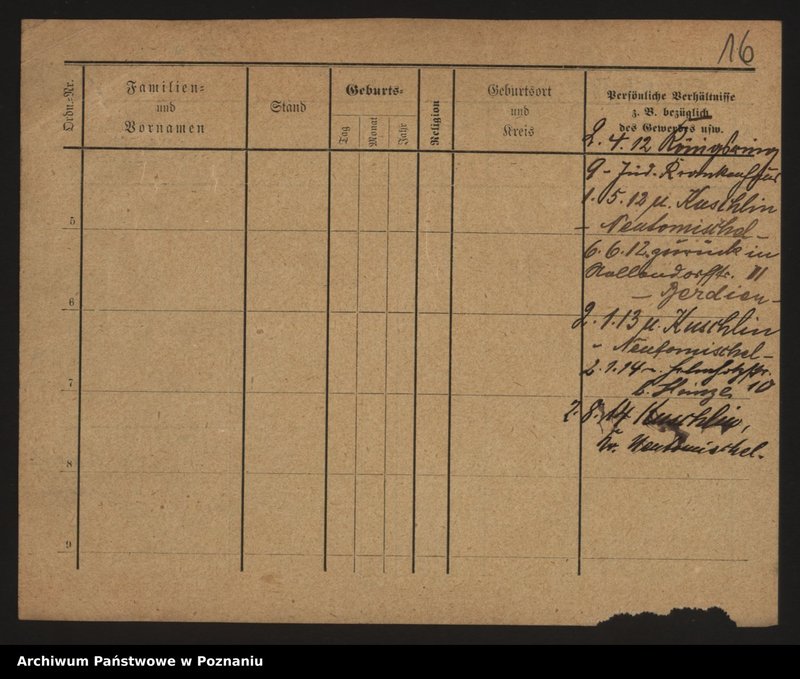 16
Ordn.-Nr.
Familien-
und
Vornamen
Stand
Geburts-
Tag
Monat
Jahr
Religion
Geburtsort
und
Kreis
Persönliche Verhältnisse
z. B. bezüglich
des Gewerbes usw.
2. 4. 12 Königsring
9 - Jüd. Krankenhaus
1. 5. 12 n. Kuschlin
- Neutomischel -
6. 6. 12 zurück in
- Berdien -
2. 1. 13 n. Kuschlin
- Neutomischel -
2. 1. 14 - 10
7. 8. 14 Kuschlin,
Kr. Neutomischel.
5
6
7
8
9
Archiwum Państwowe w Poznaniu